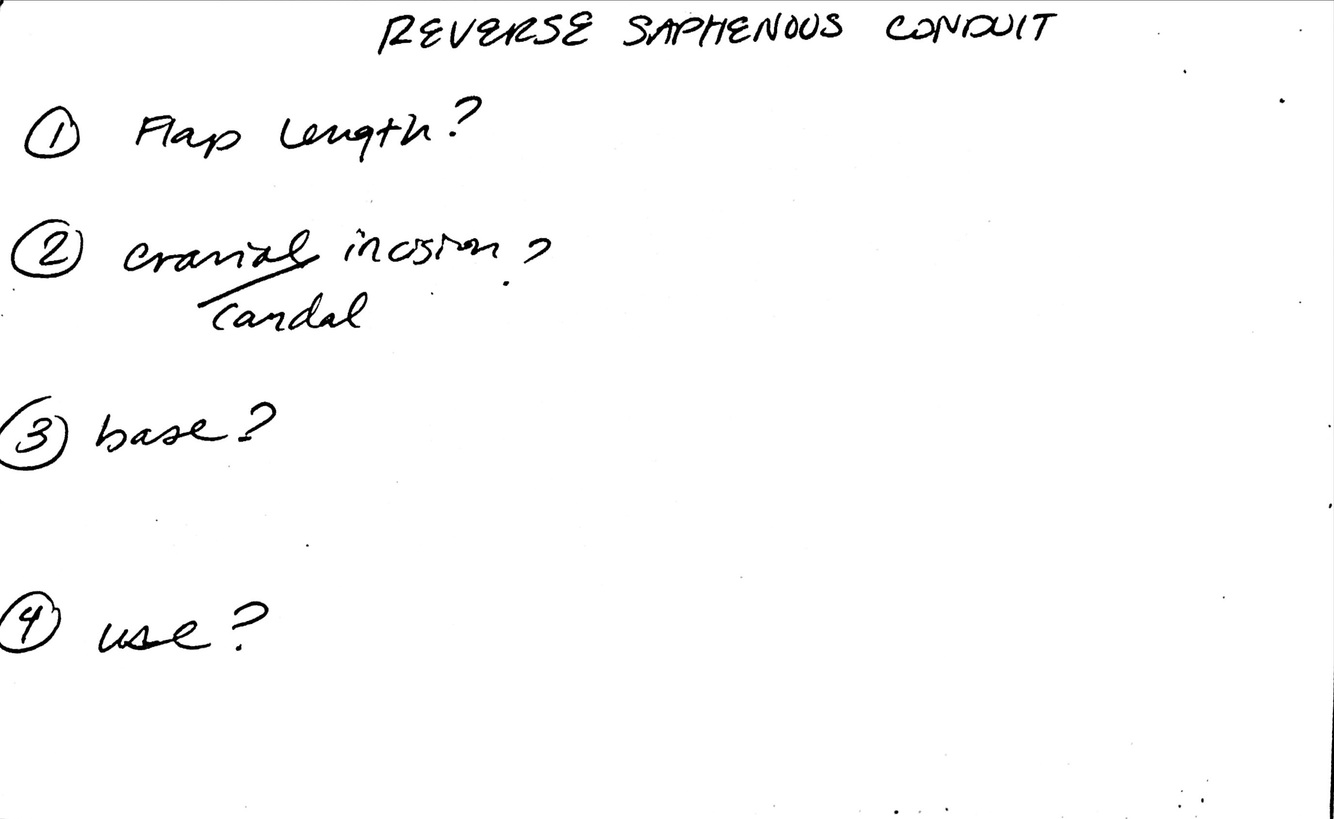 REVERSE SAPHENOUS CONDUIT
① Flap Length?
② cranial incision?
caudal
③ base?
④ use?